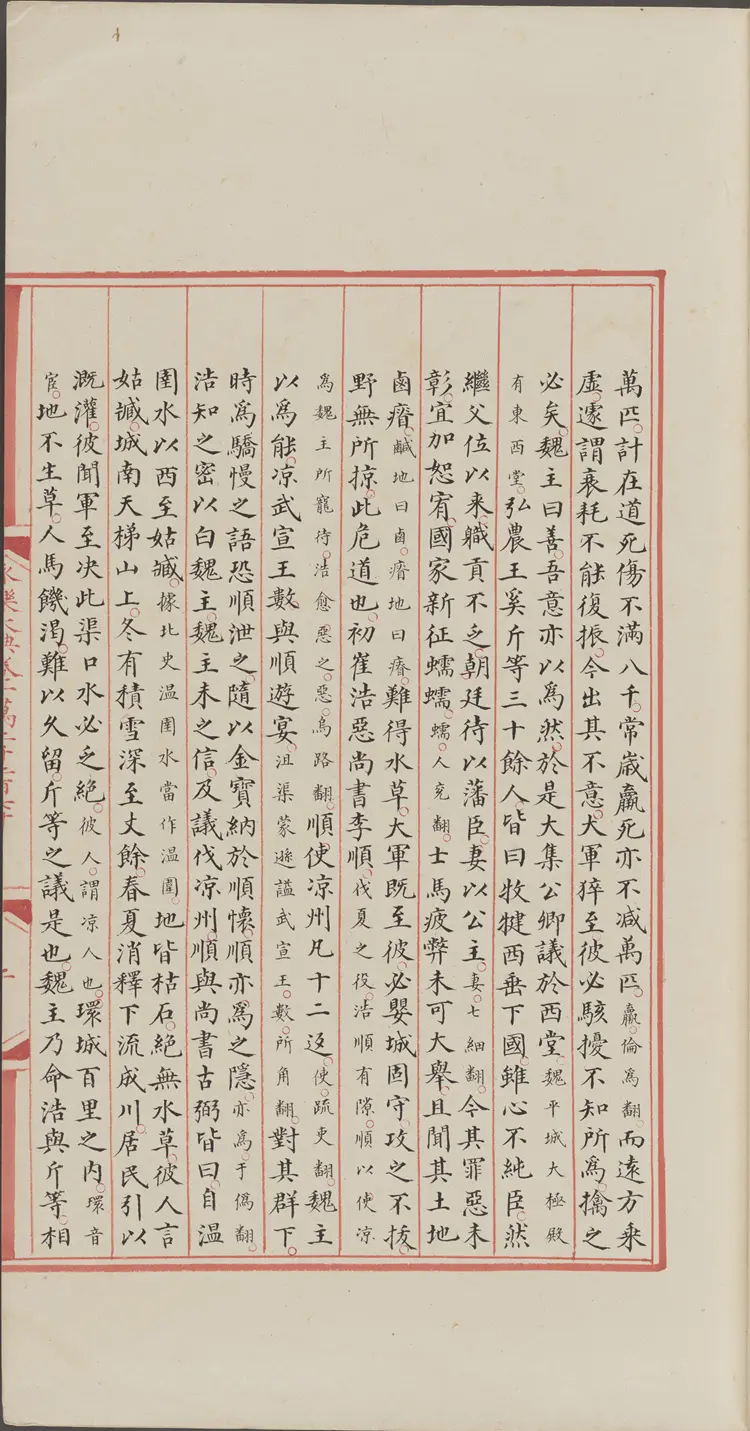 萬匹。計在道死傷不滿八千。常歲羸死亦不減萬匹。羸。倫為翻。而遠方乘
虛。遽謂衰耗不能復振。今出其不意。大軍猝至彼必駭擾不知所為。擒之
必矣。魏主曰善。吾意亦以為然。於是大集公卿議於西堂。魏平城大極殿
有東西堂。弘農王奚斤等三十餘人。皆曰牧犍西垂下國。雖心不純臣。然
繼父位以來。職貢不乏。朝廷待以藩臣。妻以公主。妻。七細翻。今其罪惡未
彰。宜加恕宥。國家新征蠕蠕。蠕。人兗翻。士馬疲弊未可大舉。且聞其土地
鹵瘠。鹹地曰鹵。瘠地曰瘠。難得水草。大軍既至彼。必嬰城固守。攻之不拔。
野無所掠。此危道也。初崔浩惡尚書李順。伐夏之役。浩順有隙。順以使凉
為魏主所寵待。浩愈惡之。惡。烏路翻。順使凉州凡十二返。使。疏吏翻。魏主
以為能。凉武宣王數與順遊宴。沮渠蒙遜諡武宣王。數。所角翻。對其群下。
時為驕慢之語恐順泄之。隨以金寶納於順懷。順亦為之隱。亦為。于偽翻。
浩知之密以白魏主。魏主未之信。及議伐凉州順與尚書古弼皆曰。自温
圉水以西至姑臧。據北史温圉水當作温圍。地皆枯石。絕無水草。彼人言
姑臧。城南天梯山上。冬有積雪深至丈餘。春夏消釋下流成川。居民引以
溉灌。彼聞軍至决此渠口水必乏絕。彼人。謂凉人也。環城百里之內。環音
宦。地不生草。人馬饑渴。難以久留。斤等之議是也。魏主乃命浩與斤等。相